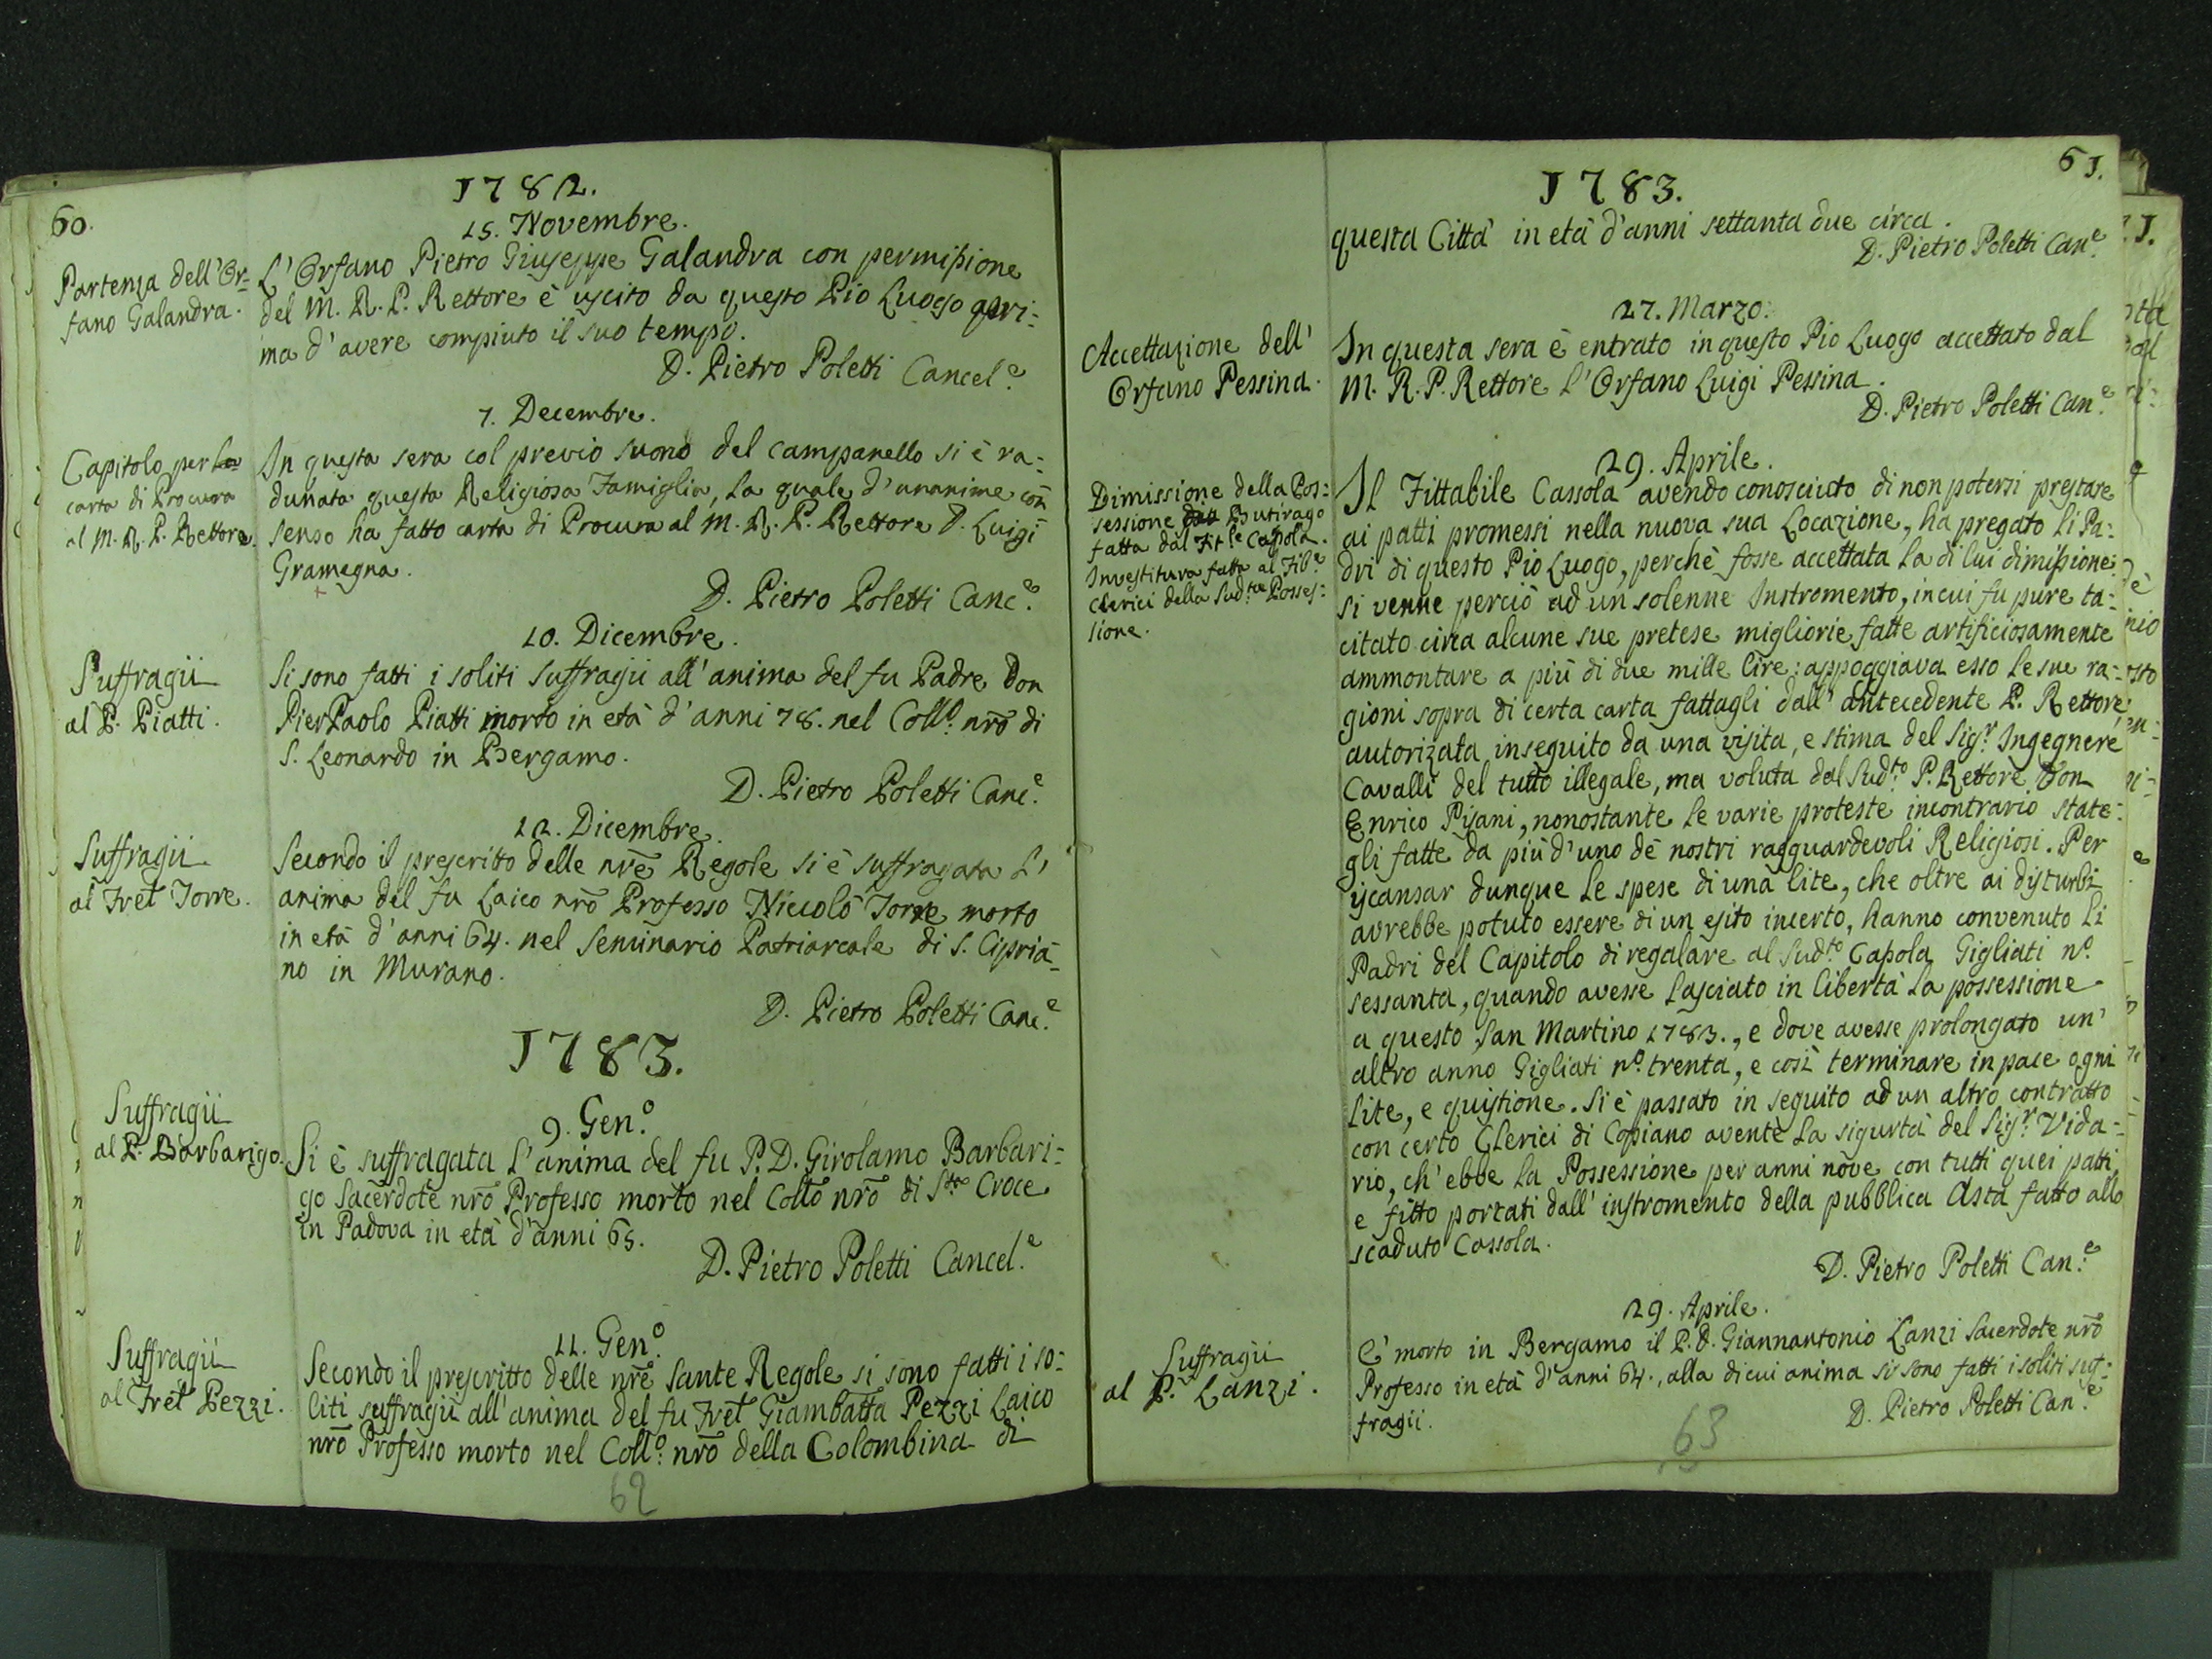 60.
1782.
15. Novembre.
Partenza dell'Or=
fano Galandra.
L'Orfano Pietro Giuseppe Galandra con permissione
del M. R. P. Rettore è uscito da questo Pio Luogo pri=
ma d'avere compiuto il suo tempo.
D. Pietro Poletti Cancel.e
7. Decembre.
Capitolo per la
carta di Procura
al M. R. P. Rettore.
In questa sera col previo suono del campanello si è ra=
dunata questa Religiosa Famiglia, la quale d'unanime con
senso ha fatto carta di Procura al M. R. P. Rettore D. Luigi
Gramegna.
D. Pietro Poletti Canc.e
10. Dicembre.
Suffragii
al P. Piatti.
Si sono fatti i soliti suffragii all'anima del fu Padre Don
Pier Paolo Piatti morto in età d'anni 78. nel Coll.o nrō di
S. Leonardo in Bergamo.
D. Pietro Poletti Canc.e
12. Dicembre.
Suffragii
al Fret Torre.
Secondo il prescritto delle nrē Regole si è suffragata l'
anima del fu Laico nrō Professo Niccolò Torre morto
in età d'anni 64. nel Seminario Patriarcale di S. Cipria=
no in Murano.
D. Pietro Poletti Canc.e
1783.
9. Gen.o
Suffragii
al P. Barbarigo.
Si è suffragata l'anima del fu P. D. Girolamo Barbari=
go Sacerdote nrō Professo morto nel Collo nrō di S.ta Croce
in Padova in età d'anni 65.
D. Pietro Poletti Cancel.e
11. Gen.o
Suffragii
al Fret Pezzi.
Secondo il prescritto delle nrē Sante Regole si sono fatti i so=
liti suffragii all'anima del fu Fret Giambatta Pezzi Laico
nrō Professo morto nel Coll.o nrō della Colombina di
62
61.
1783.
questa Città in età d'anni settanta due circa.
D. Pietro Poletti Can.e
27. Marzo.
Accettazione dell'
Orfano Pessina.
In questa sera è entrato in questo Pio Luogo accettato dal
M. R. P. Rettore l'Orfano Luigi Pessina.
D. Pietro Poletti Can.e
29. Aprile.
Dimissione della Pos=
sessione Butirago
fatta dal Fit.le Cassola.
Investitura fatta al Fib.e
Clerici della Sud.ta Posses=
sione.
Il Fittabile Cassola avendo conosciuto di non potersi prestare
ai patti promessi nella nuova sua Locazione, ha pregato li Pa=
dri di questo Pio Luogo, perchè fosse accettata la di lui dimissione:
si venne perciò ad un solenne Instromento, in cui fu pure ta=
citato circa alcune sue pretese migliorie fatte artificiosamente
ammontare a più di due mille lire: appoggiava esso le sue ra=
gioni sopra di certa carta fattagli dall'antecedente P. Rettore,
autorizata inseguito da una visita, e stima del Sig.r Ingegnere
Cavalli del tutto illegale, ma voluta dal Sud.to P. Rettore Don
Enrico Pisani, nonostante le varie proteste incontrario state=
gli fatte da più d'uno dè nostri ragguardevoli Religiosi. Per
iscansar dunque le spese di una lite, che oltre ai disturbi
avrebbe potuto essere di un esito incerto, hanno convenuto li
Padri del Capitolo di regalare al Sud.to Cassola Gigliati n.o
sessanta, quando avesse lasciato in libertà la possessione
a questo San Martino 1783., e dove avesse prolongato un'
altro anno Gigliati n.o trenta, e così terminare in pace ogni
lite, e quistione. Si è passato in seguito ad un altro contratto
con certo Clerici di Copiano avente la sigurtà del Sig.r Vida=
rio, ch'ebbe la Possessione per anni nove con tutti quei patti,
e fitto portati dall'instromento della pubblica Asta fatto allo
scaduto Cassola.
D. Pietro Poletti Can.e
29. Aprile.
Suffragii
al P. Lanzi.
E' morto in Bergamo il P. D. Giannantonio Lanzi Sacerdote nrō
Professo in età d'anni 64., alla di cui anima si sono fatti i soliti suf=
fragii.
D. Pietro Poletti Can.e
63